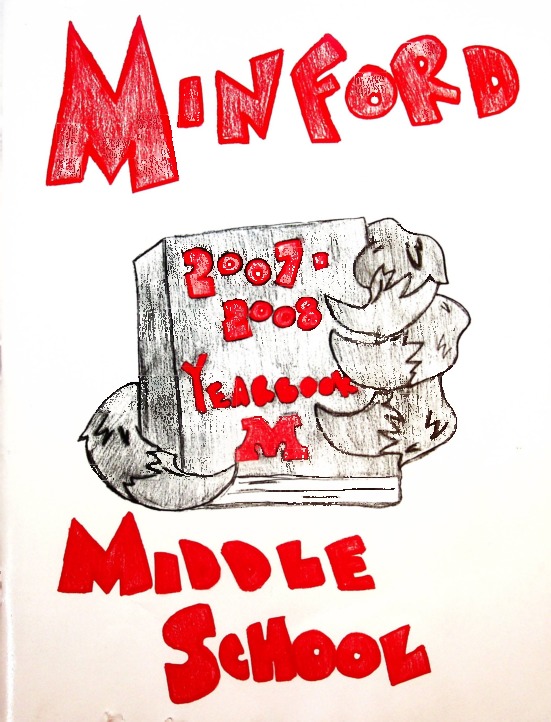 MINFORD
2007-
2008
YEARBOOK
M
MIDDLE
SCHOOL